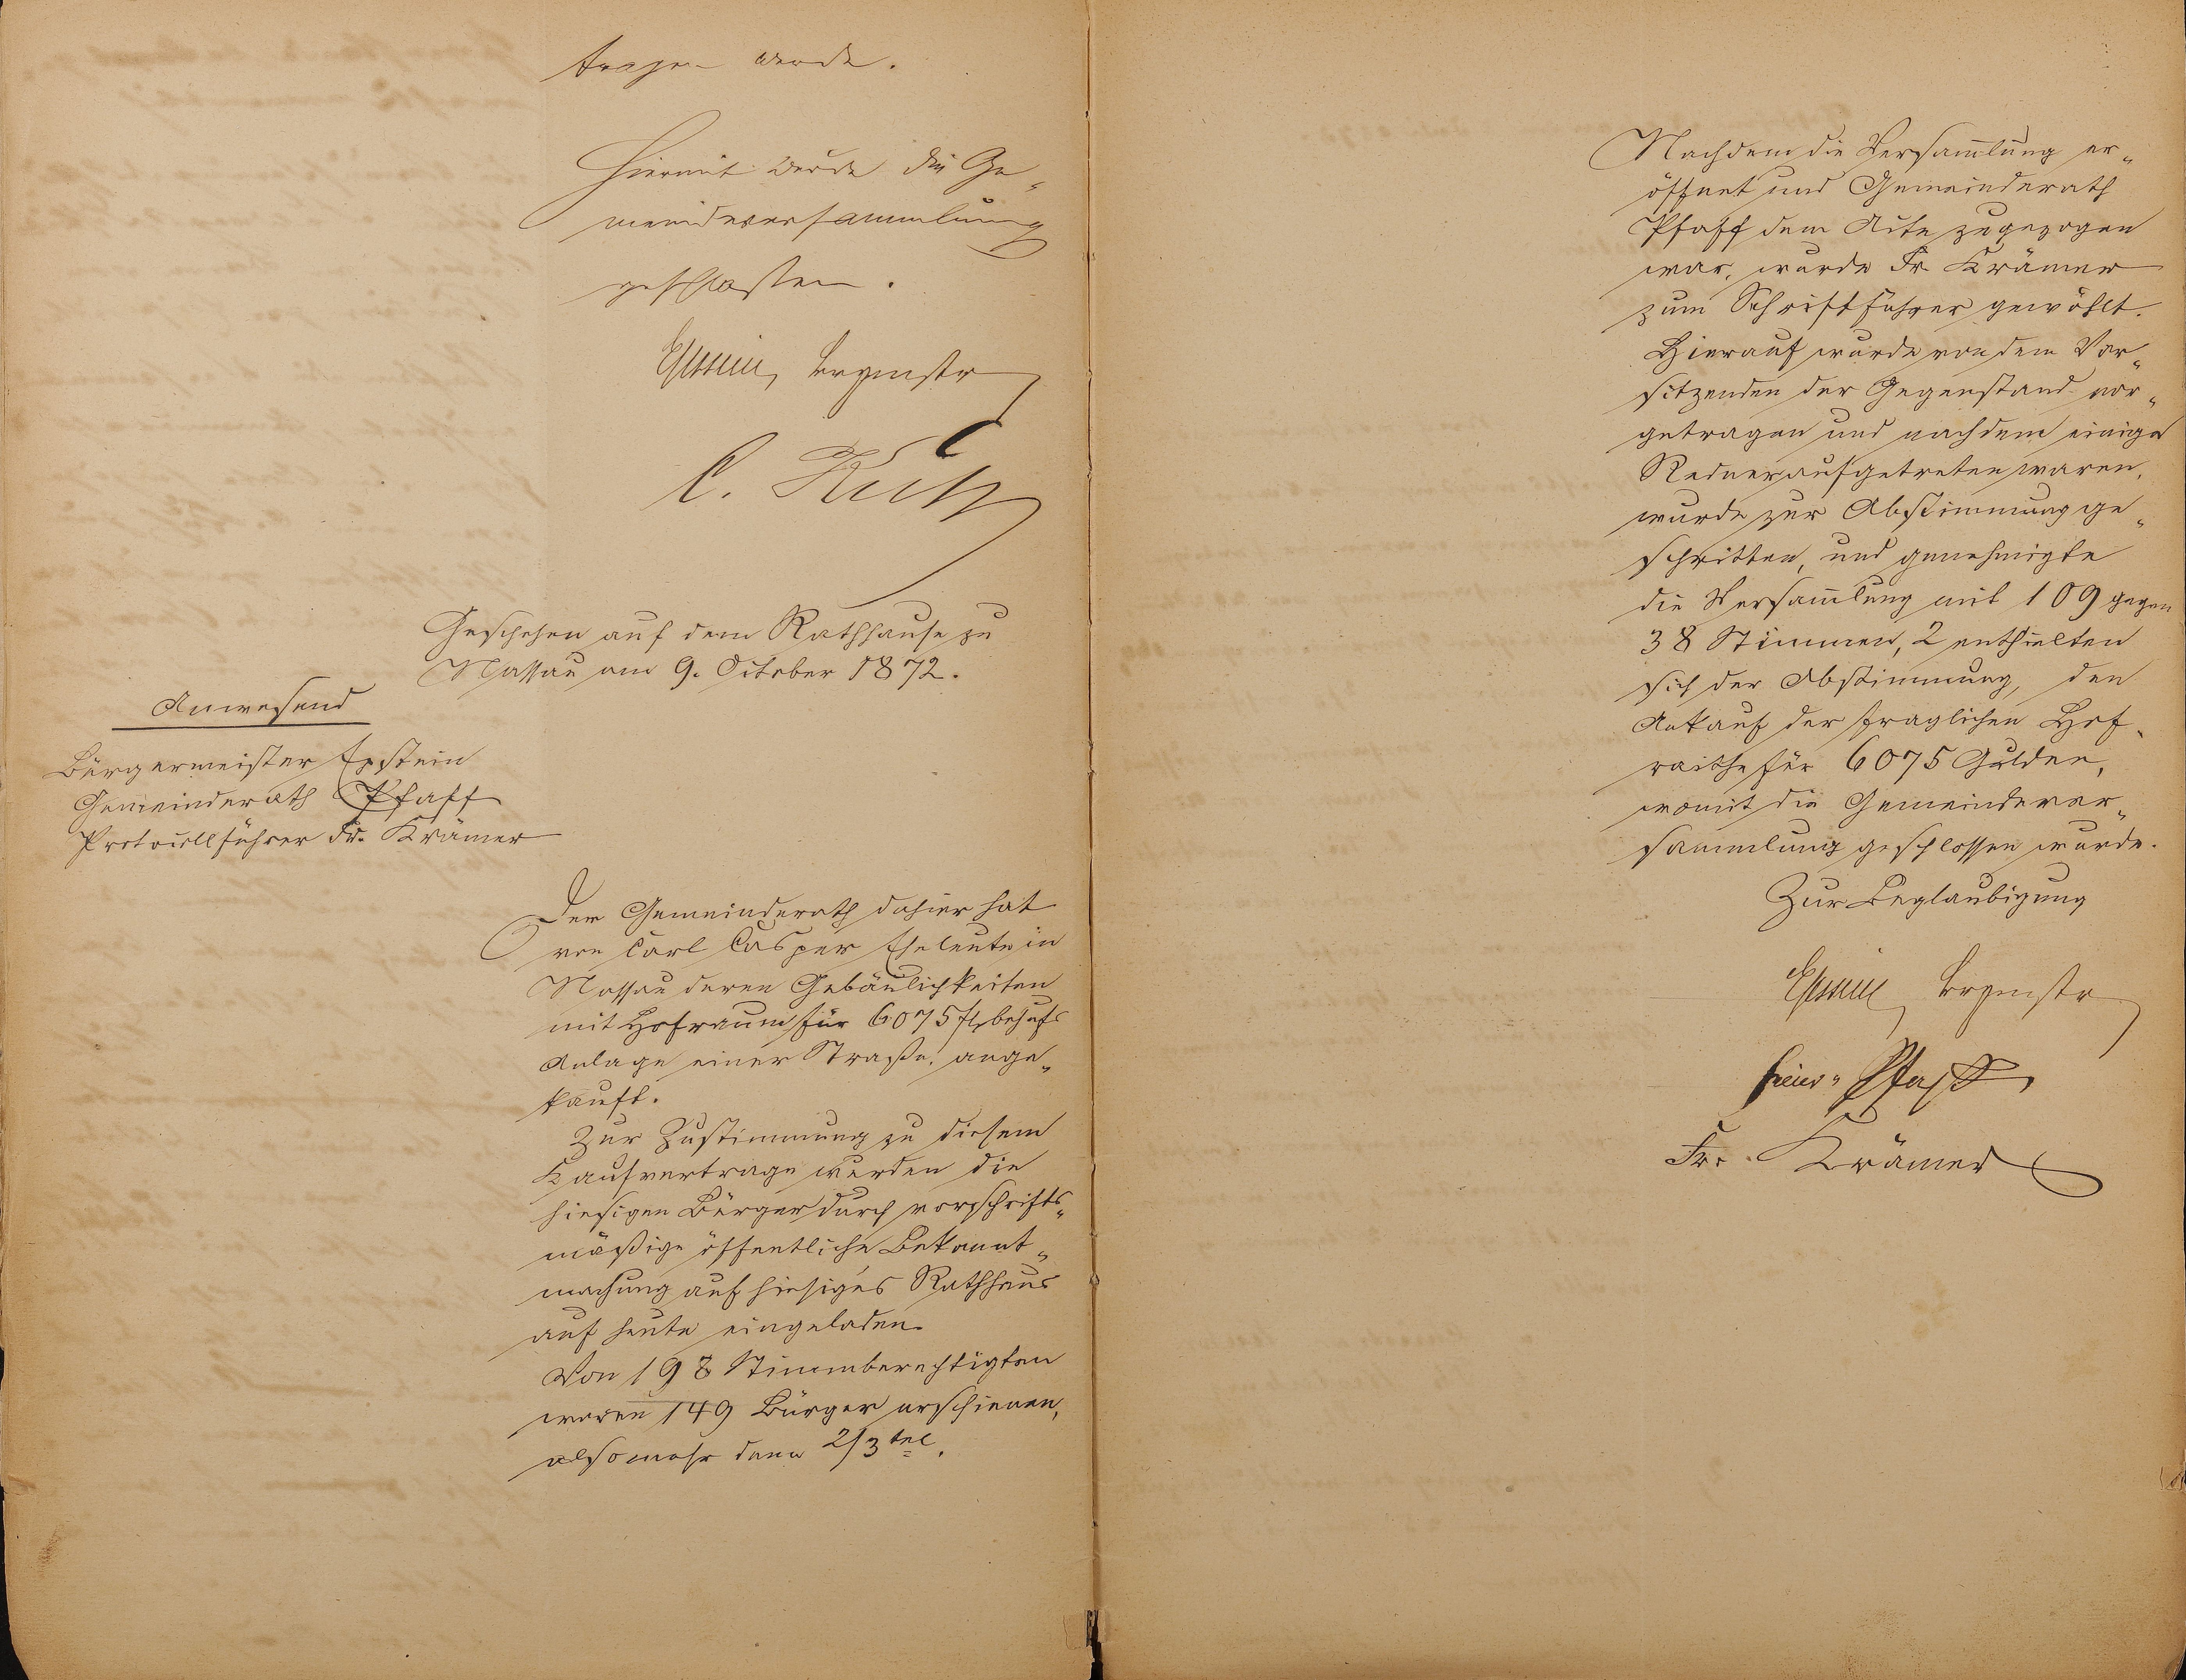 tragen werde.
Hiermit wurde die Ge„
meindeversammlung
geschlossen.
Epstein, Brgmstr
C.
Geschehen auf dem Rathhause zu
Nassau am 9. October 1872.
Anwesend
Bürgermeister Epstein
Gemeinderath Pfaff
Protocollführer Fr. Krämer
Der Gemeinderath dahier hat
von Carl Casper Eheleute in
Nassau deren Gebäulichkeiten
mit Hofraum für 6075 fl. behufs
Anlage einer Straße, ange„
kauft.
Zur Zustimmung zu diesem
Kaufvertrage wurden die
hiesigen Bürger durch vorschrifts„
mäßige öffentliche Bekannt„
machung auf hiesiges Rathhaus
auf heute eingeladen.
Von 198 Stimmberechtigten
waren 149 Bürger erschienen,
also mehr denn 2/3tel.
Nachdem die Versam̄lung er„
öffnet und Gemeinderath
Pfaff dem Acte zugezogen
war, wurde Fr. Krämer
zum Schriftführer gewählt.
Hierauf wurde von dem Vor„
sitzenden der Gegenstand vor„
getragen und nachdem einige
Redner aufgetreten waren,
wurde zur Abstimmung ge„
schritten, und genehmigte
die Versam̄lung mit 109 gegen
38 Stimmen, 2 enthielten
sich der Abstimmung, den
Ankauf der fraglichen Hof„
raithe für 6075 Gulden,
womit die Gemeindever„
sammlung geschlossen wurde.
Zur Beglaubigung
Epstein, Brgmstr
Pfaff
Fr. Krämer